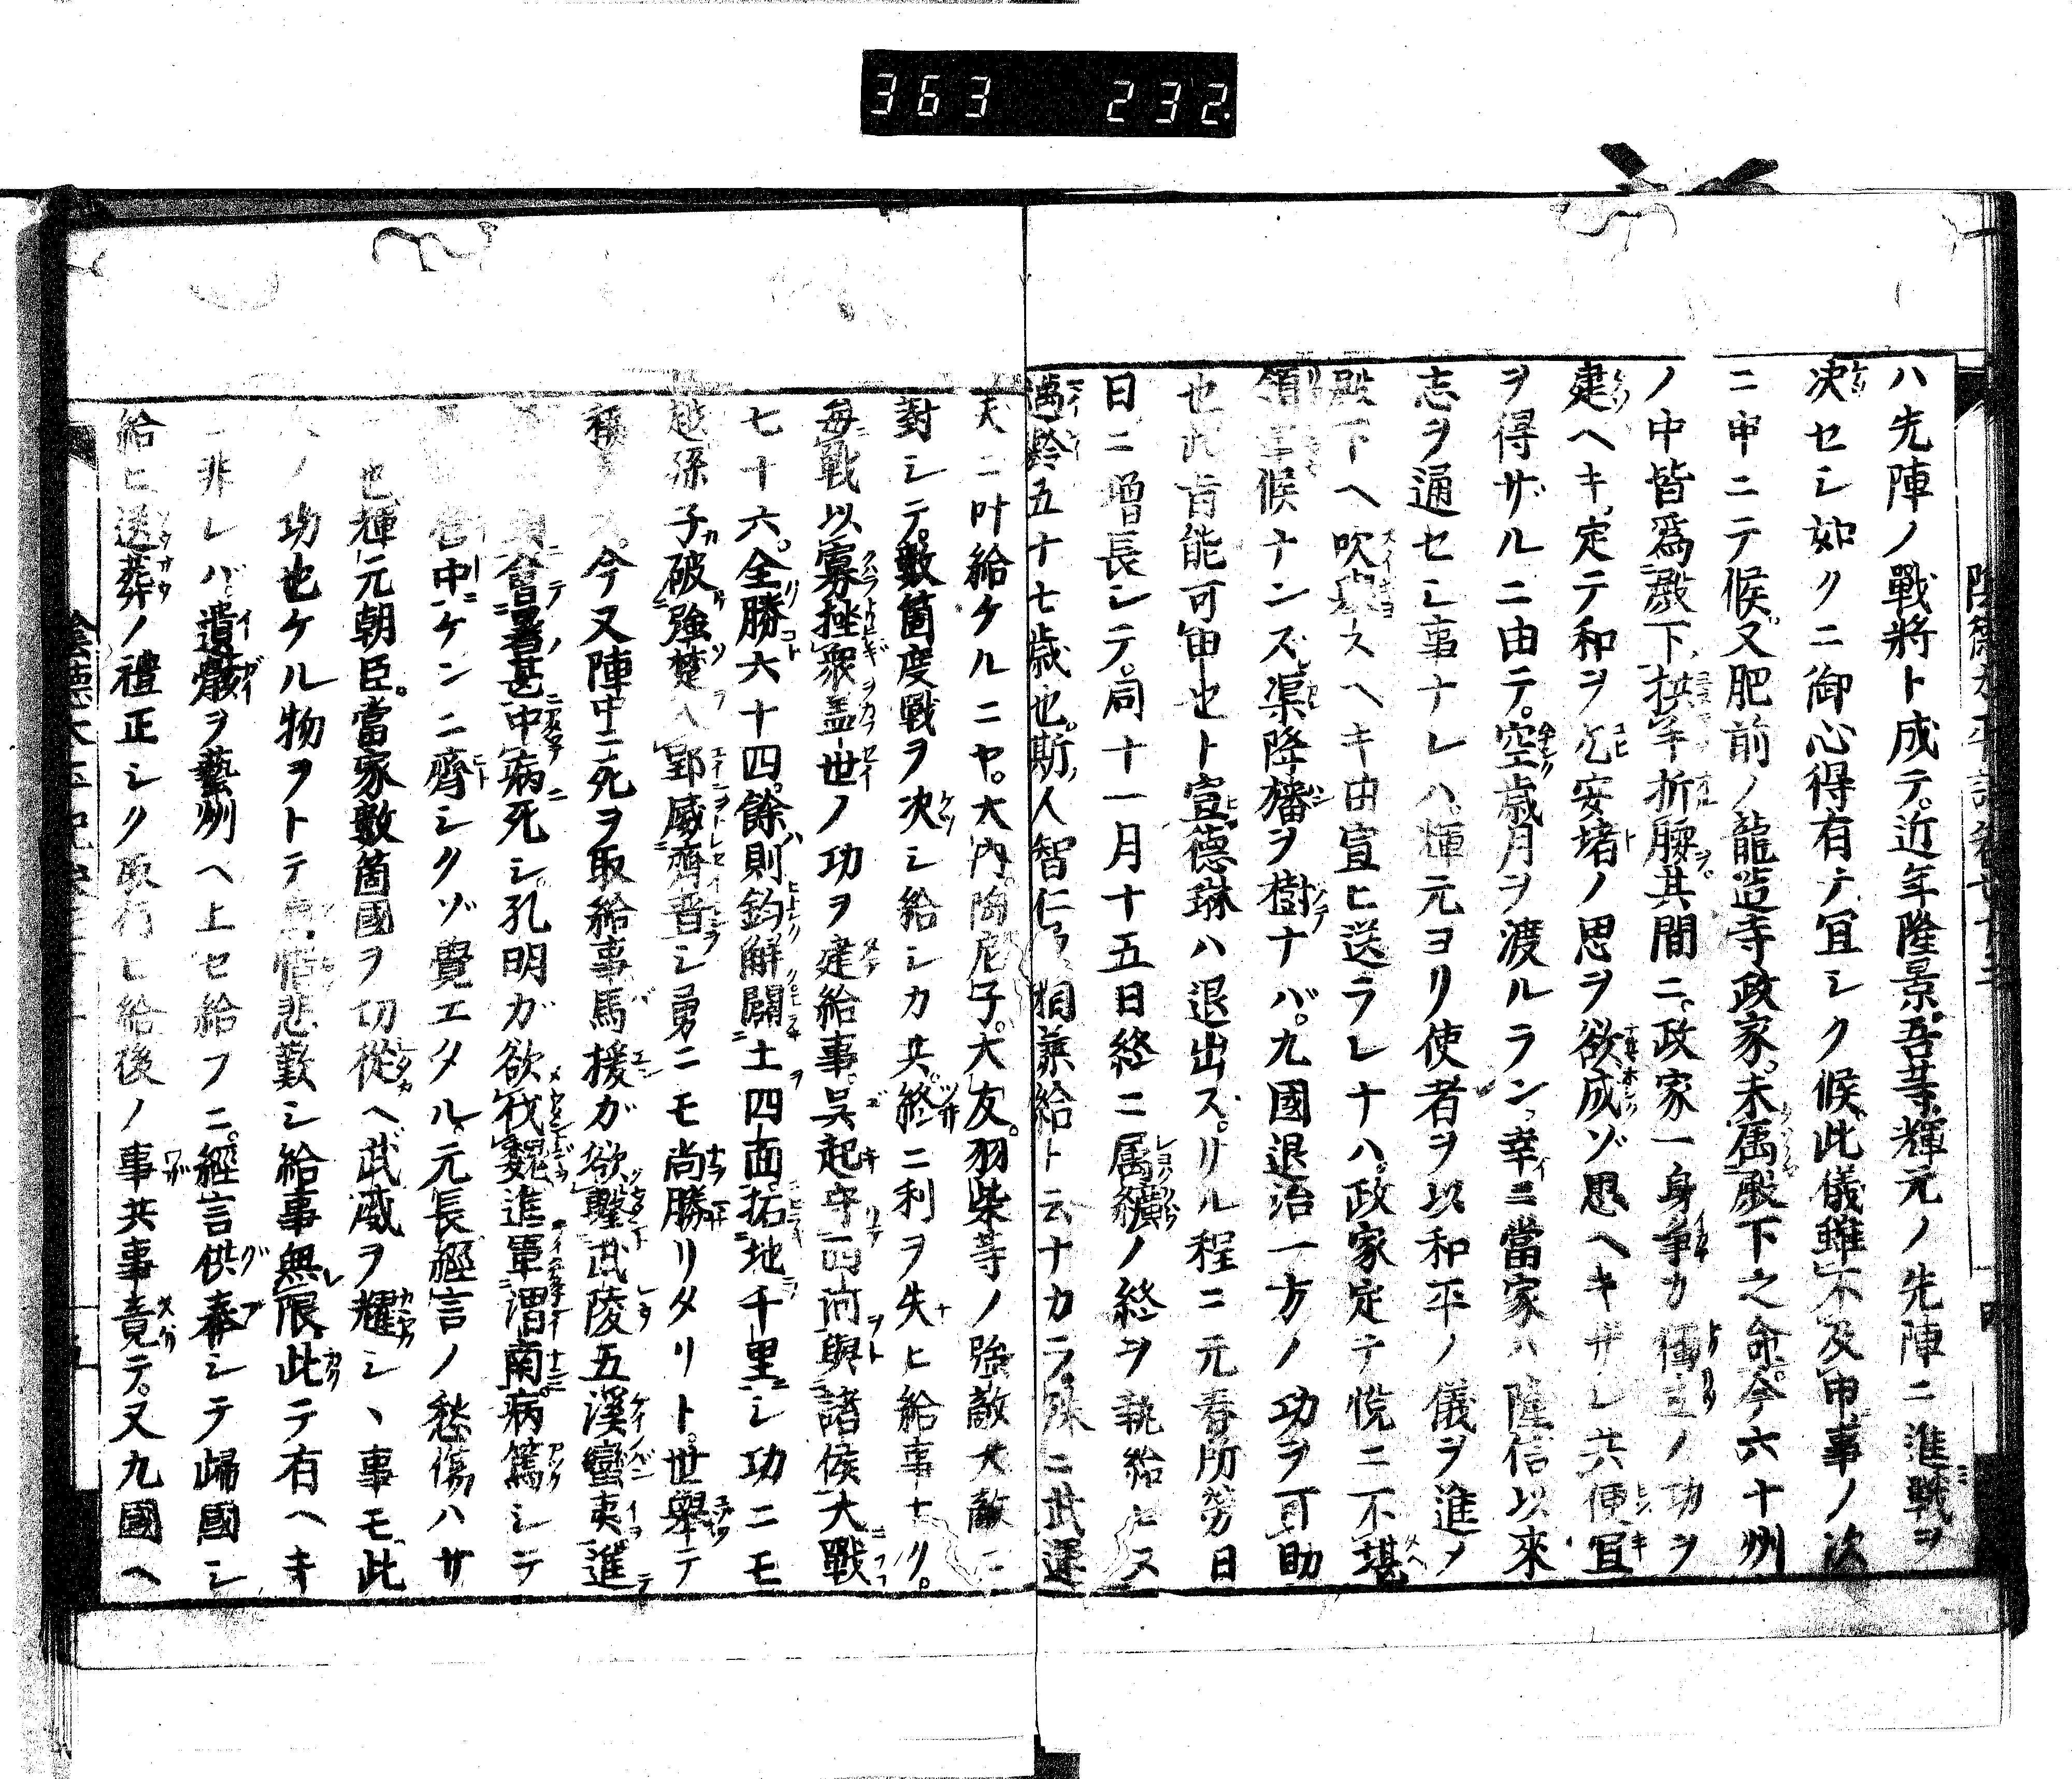 363 232.
ハ先陣ノ戰將ト成テ。近年隆景。吾等輝元ノ先陣ニ進戰ヲ
决セシ如クニ御心得有テ冝シク候。此儀雖不及申事ノ次
ニ申ニテ候。又肥前ノ龍造寺政家。未属殿下之命。今六十州
ノ中皆爲殿下拱手折腰其間ニ。政家一身争カ獨立ノ功ヲ
建ヘキ。定テ和ヲ乞安堵ノ思ヲ欲成ゾ思ヘキザレ共便冝
ヲ得ザルニ由テ。空歳月ヲ渡ルラン。幸ニ當家ハ隆信以來
志ヲ通セシ事ナレハ。輝元ヨリ使者ヲ以和平ノ儀ヲ進メ
殿下ヘ吹擧スヘキ由宣ヒ送ラレナハ。政家定テ悦ニ不堪
領掌候ナンズ。渠降旛ヲ樹ナバ。九國退治一方ノ功ヲ可助
也此旨能可申也ト宣。德琳ハ退出ス。リル程ニ元春所勞日
日ニ增長シテ。同十一月十五日終ニ属纊ノ終ヲ執給ヒヌ
五十七歳也。斯人智仁勇相兼給ト云ナカラ。殊ニ武運
天ニ叶給ケルニヤ。大内。陶。尼子。大友。羽柴等ノ強敵大敵ニ
對シテ。數箇度戰ヲ决シ給シカ共。終ニ利ヲ失ヒ給事ナリ。
毎戰以寡挫衆蓋世ノ功ヲ建給事。呉起守西河與諸侯大戰
七十六。全勝六十四。餘則鈞解闢土四面。拓地千里シ功ニモ
越孫子破強楚入郢威齊晋シ勇ニモ尚勝リタリト。世擧テ
稱 ス。今又陣中ニ死ヲ取給事馬援ガ欲擊武陵五溪蠻夷進
會暑甚中病死シ。孔明ガ欲伐魏進軍渭南。病篤シテ
中ケンニ齊シクゾ覺エタル。元長經言ノ愁傷ハサ
也。輝元朝臣。當家數箇國ヲ切從ヘ。武威ヲ耀シヽ事モ。此
ノ功也ケル物ヲトテ 惜悲歎シ給事無限。此テ有ヘキ
非レバ。遺骸ヲ藝州ヘ上セ給フニ。經言供奉シテ歸國シ
給ヒ送葬ノ禮正シク取行ヒ給後ノ事共事竟テ。又九國ヘ